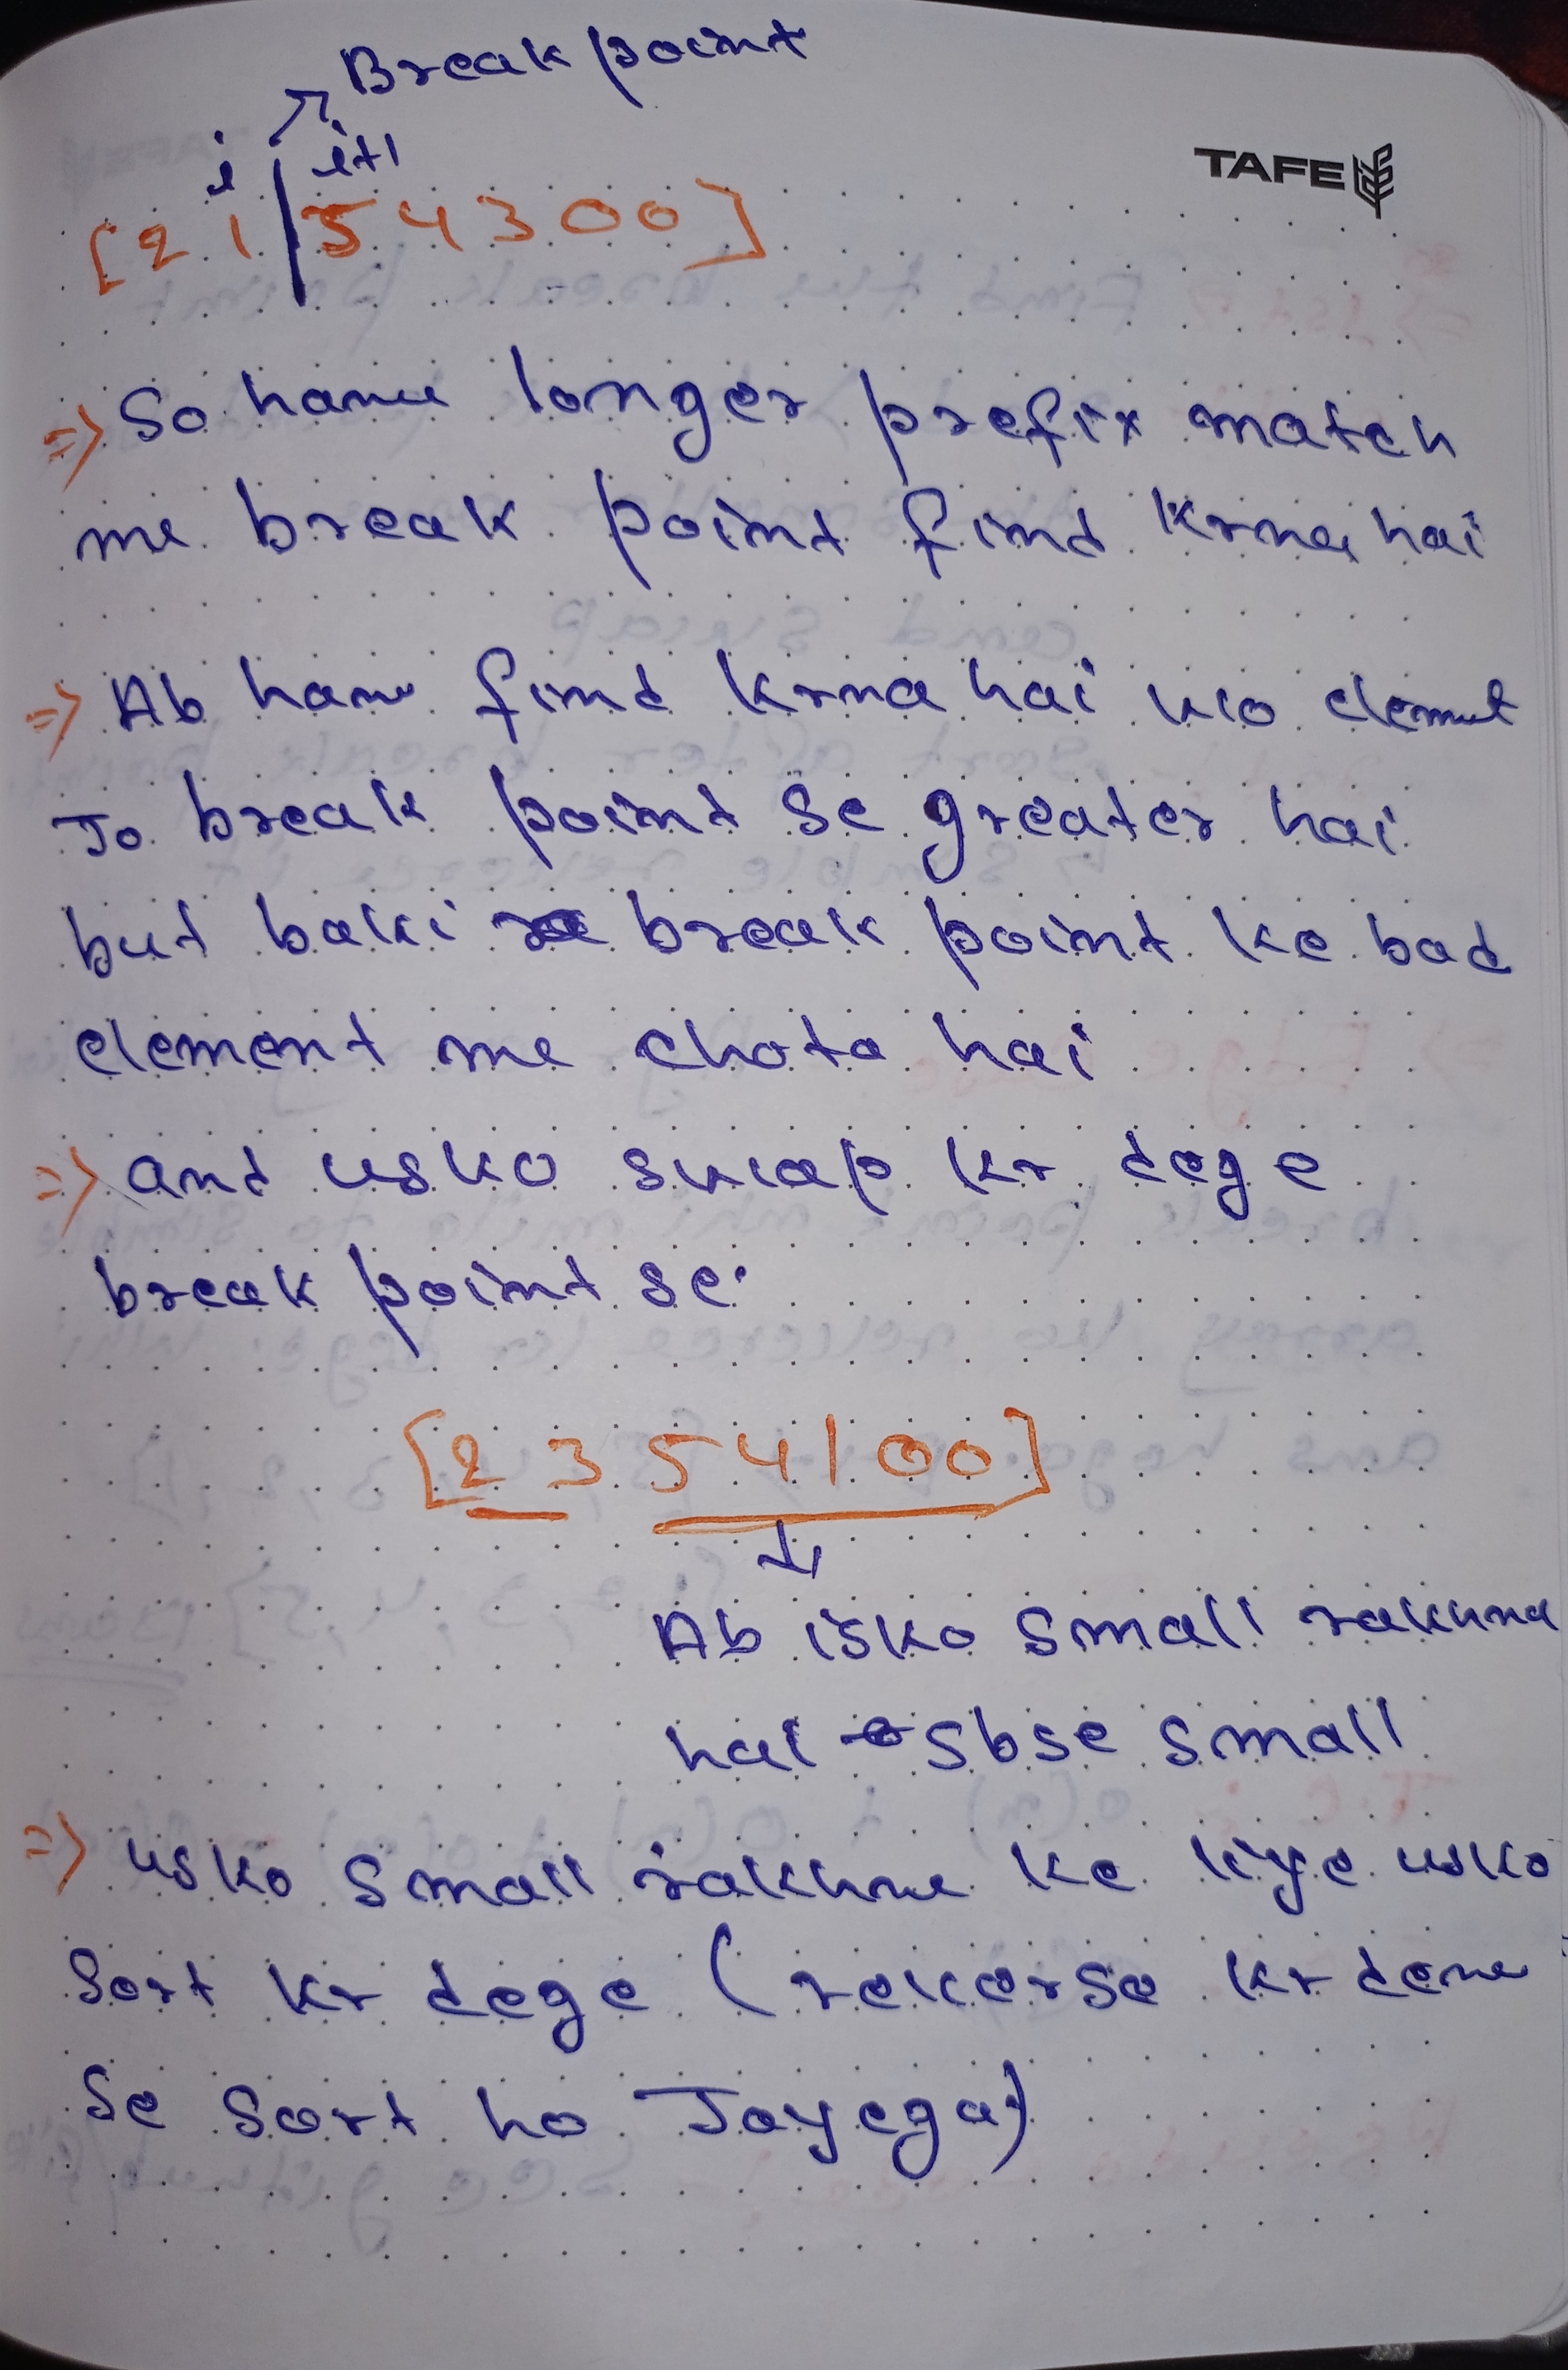 Break point
i i+1
[2 1 | 5 4 3 0 0]
TAFE
=> So hame longer prefix match
me break point find krna hai
=> Ab hame find krna hai wo elemnt
Jo break point se greater hai
but baki break point ke bad
element me chota hai
=> and usko swap kr dege
break point se.
[2 3 5 4 1 0 0]
Ab isko small rakhna
hai sbse small
=> usko small rakhne ke liye usko
sort kr dege (reverse kr dene
se sort ho Jayega)